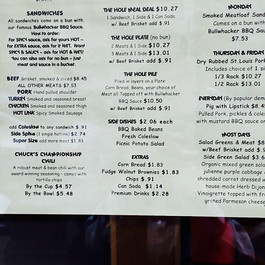 SANDWICHES
All sandwiches come on a bun with
our famous Bullwhacker BBQ Sauce.
How to order:
For SPICY sauce, ask for yours HOT -
for EXTRA sauce, ask for it WET. Want
SPICY & SAUCY - ask for HOT & WET!
You can also ask for no bun - just
meat and sauce in a bucket.
BEEF Brisket, smoked & sliced $8.45
ALL OTHER MEATS $7.53
PORK Hand pulled shoulder
TURKEY Smoked and seasoned breast
CHICKEN Smoked and seasoned thigh
HOT LINK Spicy Smoked Sausage
add Coleslaw to any sandwich $.91
Side Spike (1 single flatline) $2.74
Super Size add more meat $1.83
CHUCK'S CHAMPIONSHIP
CHILI
A robust meat & bean chili with our
award-winning seasoning - comes with
tortilla chips
By the Cup $4.57
By the Bowl $5.48
THE HOLE MEAL DEAL $10.27
1 Sandwich, 1 Side & 1 Can Soda
w/ Beef Brisket add $.91
THE HOLE PLATE (no bun)
2 Meats & 1 Side $10.27
3 Meats & 1 Side $13.01
w/ Beef Brisket add $.91
THE HOLE PILE
Piled in layers on a Plate
Corn Bread, Beans, your choice of
Meat all Topped off with Bullwhacker
BBQ Sauce $10.50
w/ Beef Brisket add $.91
SIDE DISHES $2.06 each
BBQ Baked Beans
Fresh Coleslaw
Picnic Potato Salad
EXTRAS
Corn Bread $1.83
Fudge Walnut Brownies $1.83
Chips $.91
Can Soda $1.14
Premium Drinks $2.28
MONDAY
Smoked Meatloaf Sand
Comes on a bun with
$7.53
THURSDAY & FRIDAY
Dry Rubbed St.Louis Pork
Includes choice of 1 s
1/3 Rack $10.27
1/2 Rack $13.01
EVERYDAY (By popular dem
Pig with Lipstick $8.4
Pulled Pork, pickles & coles
with mustard BBQ sauce on
MOST DAYS
Salad Greens & Meat $8
w/Beef Brisket add $.9
Side Green Salad $3.6
Organic mixed green sala
julienne purple cabbage
shredded carrot dressed w
house-made Herb Dijon
Vinaigrette topped with fr
grated Parmesan cheese